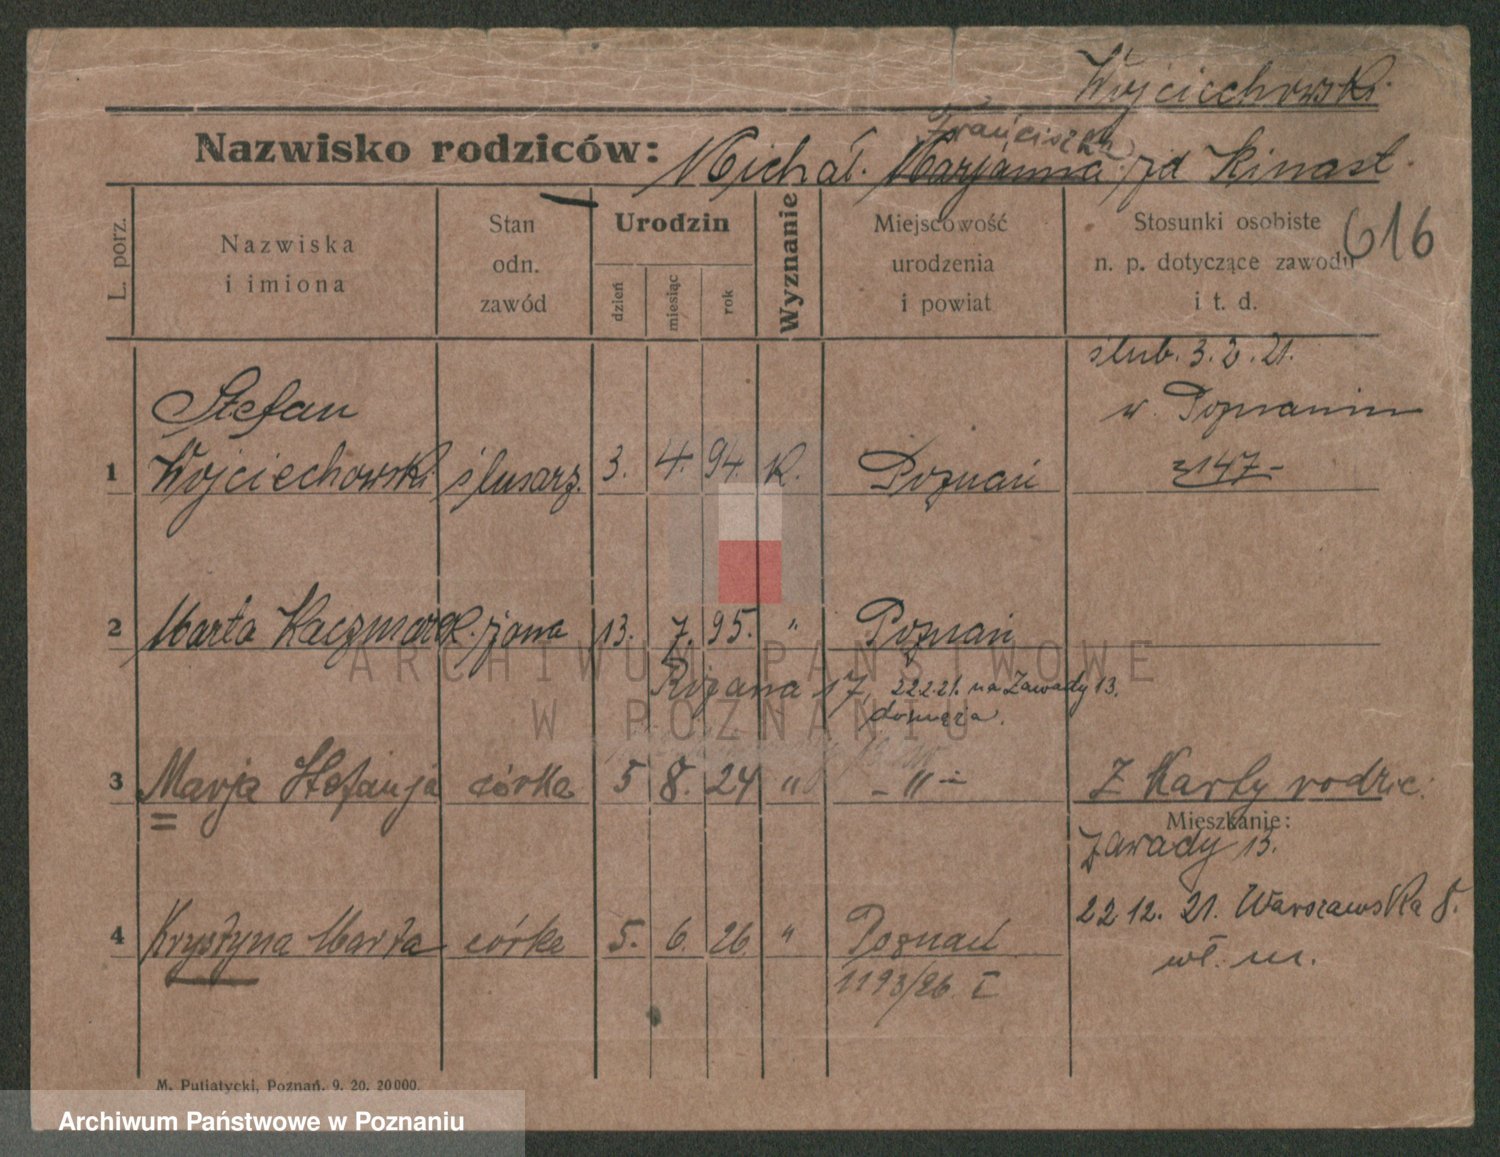 Wojciechowski
Franciszka
Nazwisko rodziców: Michał. Marjanna. zd Kinast.
L. porz.
Nazwiska i imiona
Stan odn. zawód
Urodzin
dzień
miesiąc
rok
Wyznanie
Miejscowość urodzenia i powiat
Stosunki osobiste n. p. dotyczące zawodu i t. d.
616
ślub. 3. 2. 21.
w. Poznaniu
147
Stefan
1 Wojciechowski ślusarz. 3. 4. 94. K. Poznań
2 Marta Kaczmarek. żona 13. 7. 95. " Poznań
Różana 17, 22.2.21. na Zawady 13.
do męża.
3 Marja Stefanja córka 5 8. 24 " - " - Z Karty rodzic.
Mieszkanie:
Zawady 13.
22 12. 21. Warszawska 8.
wł. m.
4 Krystyna Marta córka 5. 6. 26. " Poznań
1193/26. I
M. Putiatycki, Poznań. 9. 20. 20000.
ARCHIWUM PAŃSTWOWE
W POZNANIU
Archiwum Państwowe w Poznaniu